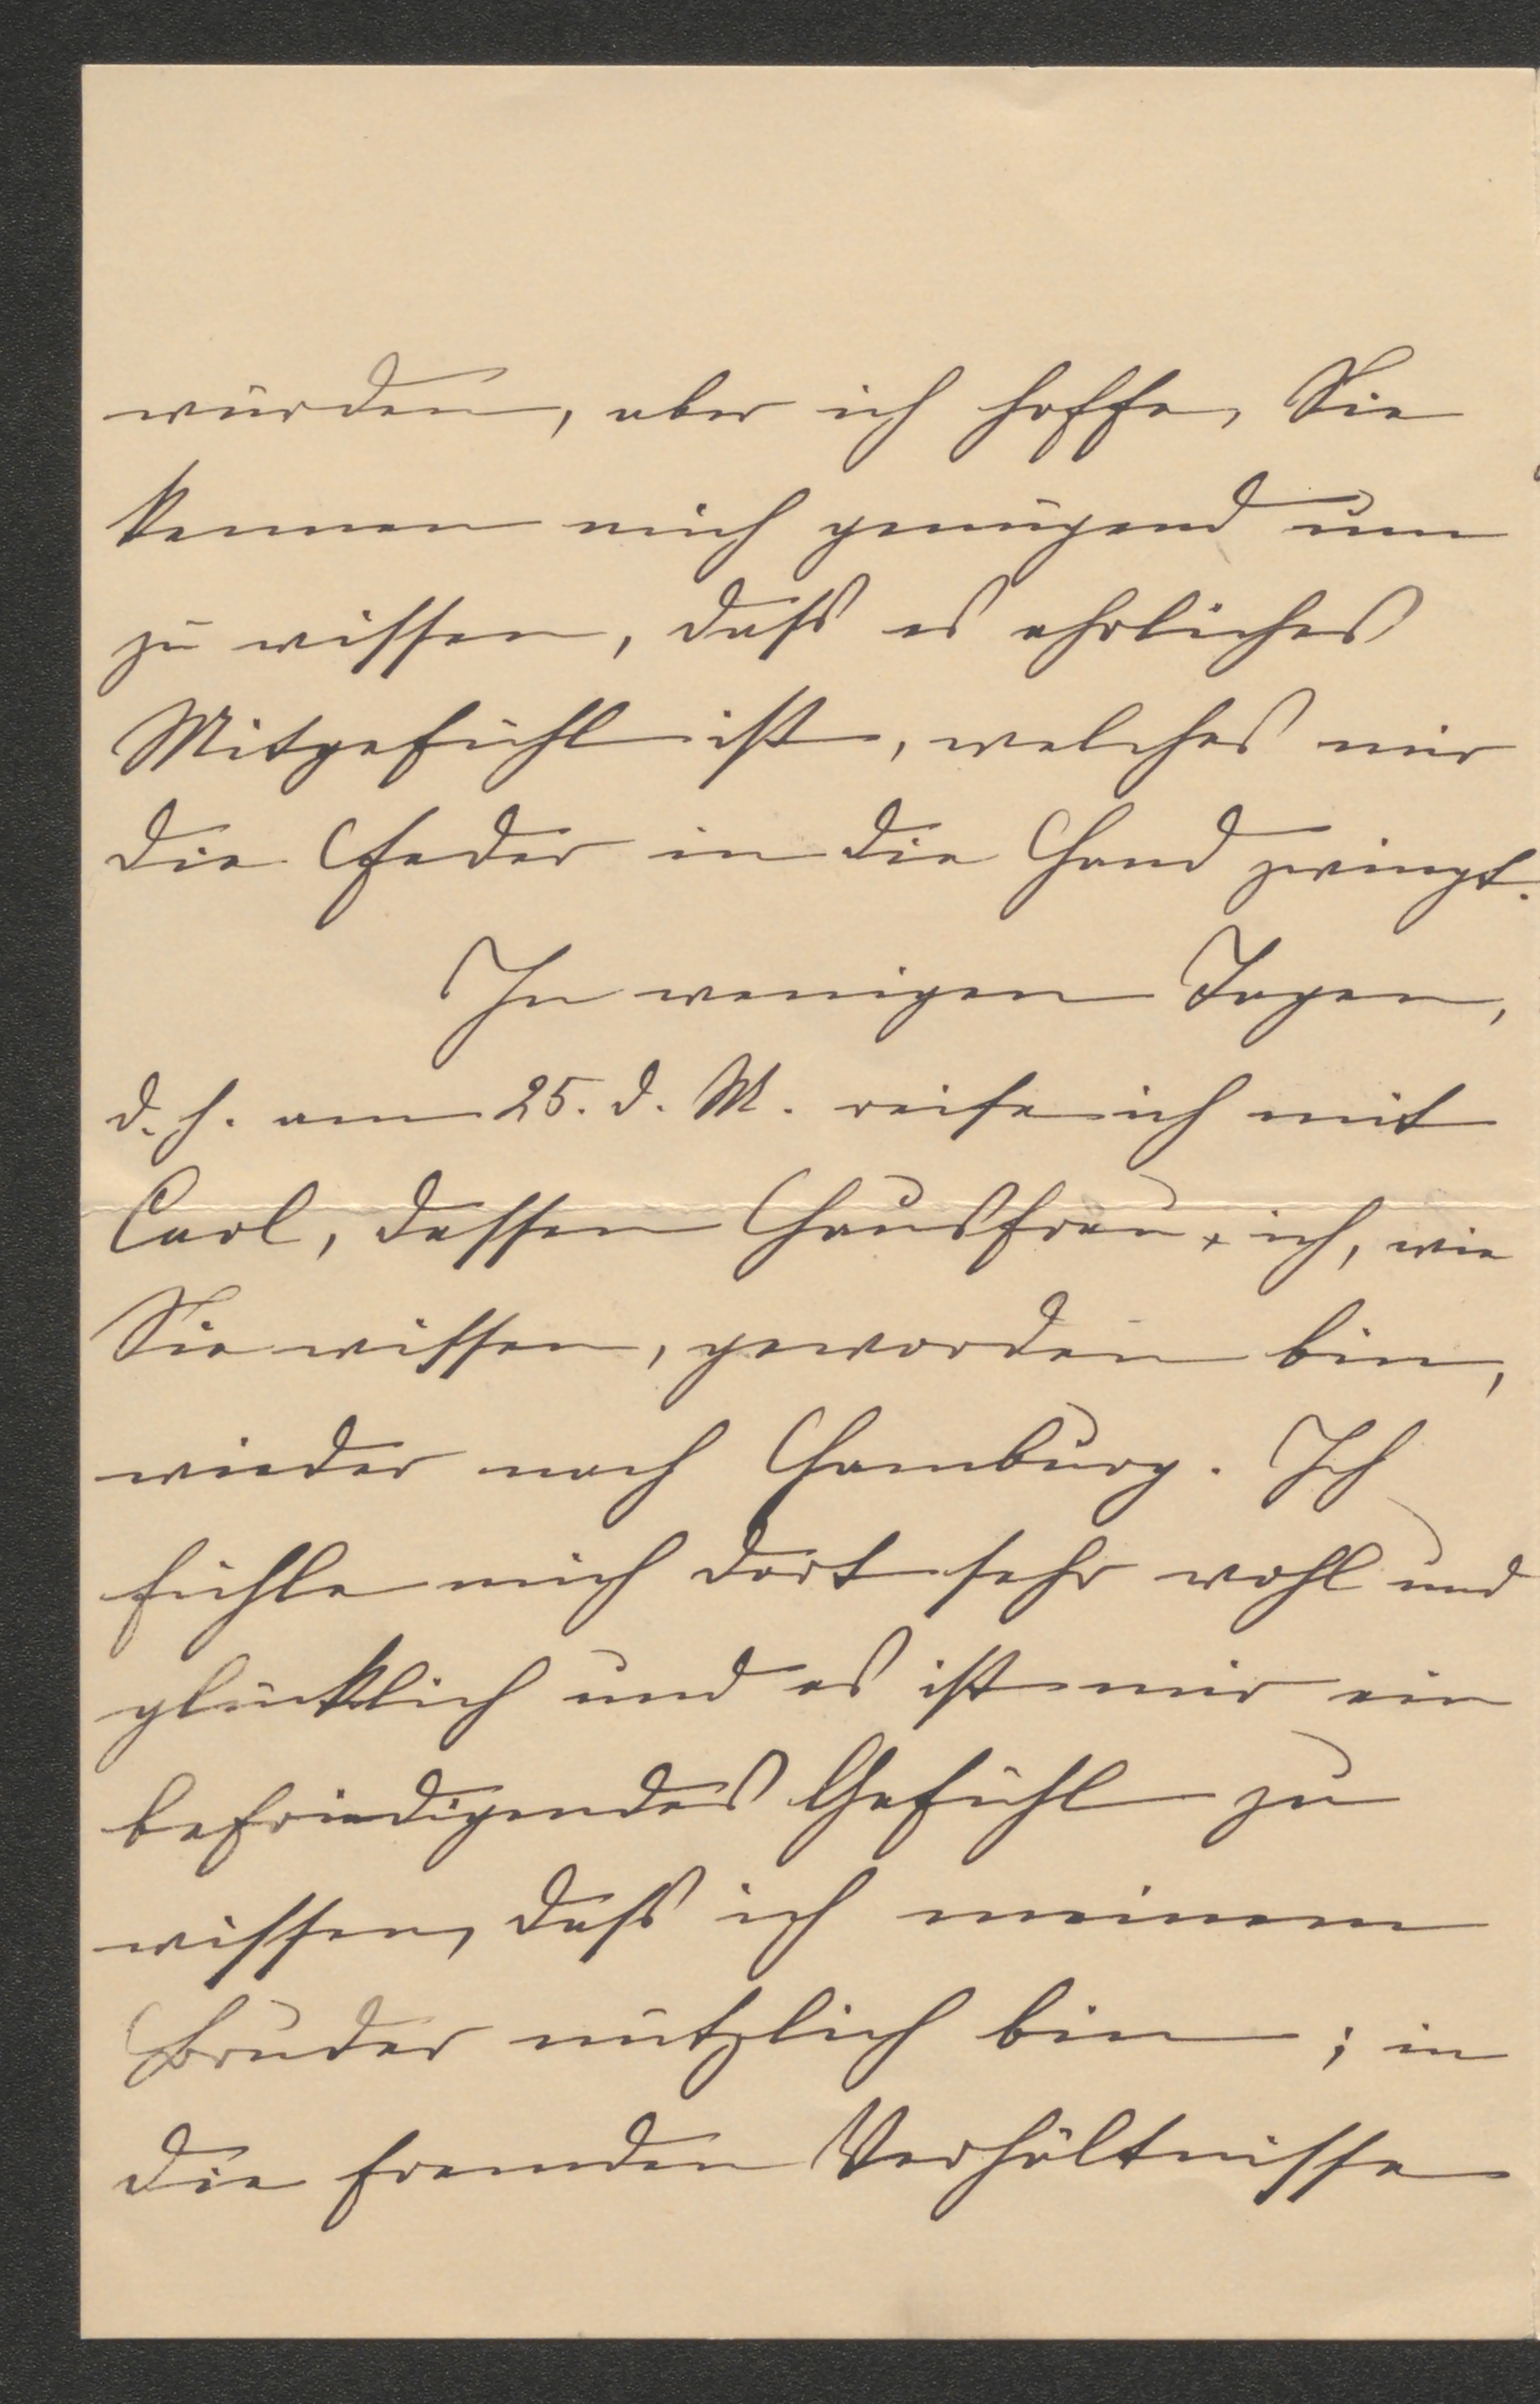 würden, aber ich hoffe, Sie
kennen mich genügend um
zu wissen, daß es ehrliches
Mitgefühl ist, welches mir
die Feder in die Hand zwingt.
In wenigen Tagen,
d. h. am 25. d. M. reise ich mit
Carl, dessen Hausfrau ich, wie
Sie wissen, geworden bin,
wieder nach Hamburg. Ich
fühle mich dort sehr wohl und
glücklich und es ist mir ein
befriedigendes Gefühl zu
wissen, daß ich meinem
Bruder nützlich bin; in
die fremden Verhältnisse